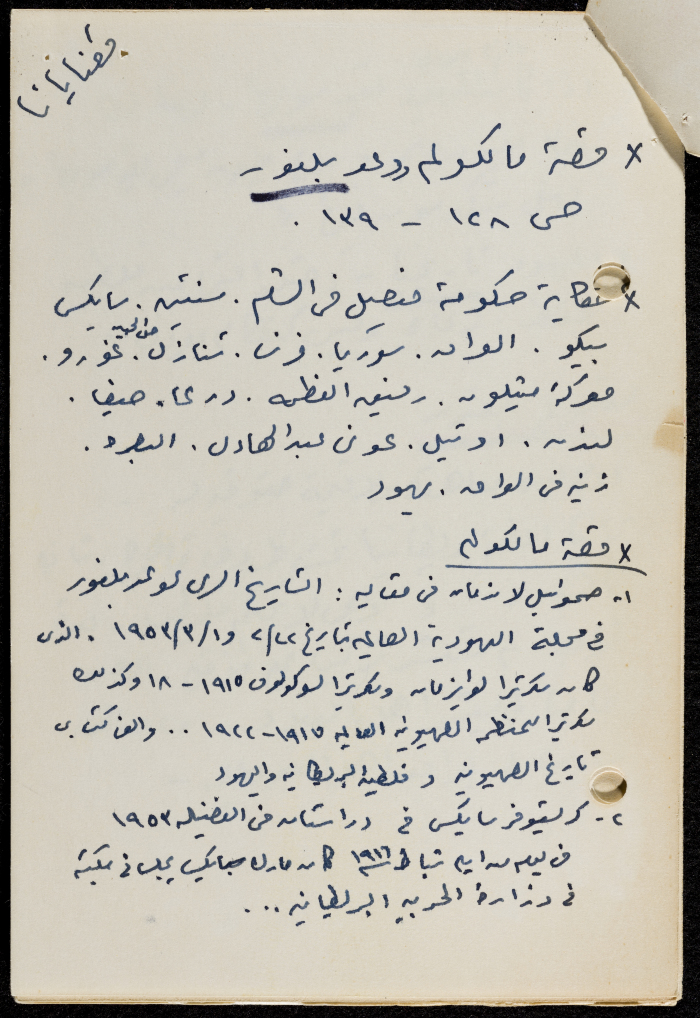 قضايانا
× قصة مالكولم ووعد بلفور -
ص ١٢٨ - ١٣٩ .
× حكاية حكومة فيصل في الشام . سنتين . سايكس
بيكو . العراق . سوريا . فرنسا . تنازل . غورو .
معركة ميسلون . رفيق العظمه . درعا . حيفا .
لندن . اوتيل . عوني عبد الهادي . البصرة .
في العراق . يهود
× قصة مالكولم
١- صموئيل لاندمان في مقاله : التاريخ السري لوعد بلفور
في مجلة اليهودية العالميه بتاريخ ٢/٢٢ و ١٩٥٣/٣/١ . الذي
كان سكرتيرا لوايزمان وسكرتيرا لسوكولوف ١٩١٥ - ١٨ وكذلك
سكرتيرا للمنظمه الصهيونيه العالميه ١٩١٧-١٩٢٢ .. والف كتابي
تاريخ الصهيونيه و فلسطين البريطانيه واليهود
٢- كرستوفر سايكس في دراستان في الفضيله ١٩٥٣
في يوم من ايام شباط سنة ١٩١٦ كان مارك سايكس يجلس في مكتبه
في وزارة الحربيه البريطانيه ...